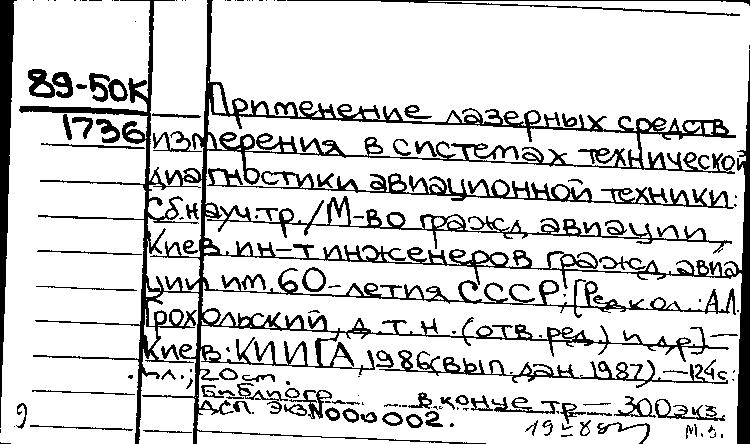 89-50К
1736
Применение лазерных средств
измерения в системах технической
диагностики авиационной техники:
Сб. науч. тр. / М-во гражд. авиации,
Киев. ин-т инженеров гражд. авиа
ции им. 60-летия СССР; [Редкол.: А.Л.
Грохольский, д.т.н. (отв. ред.) и др.] —
Киев: КИИГА, 1986 (вып. дан. 1987). — 124с.:
ил.; 20см.
Библиогр. в конце тр — 300экз.
ДСП экз N000002.